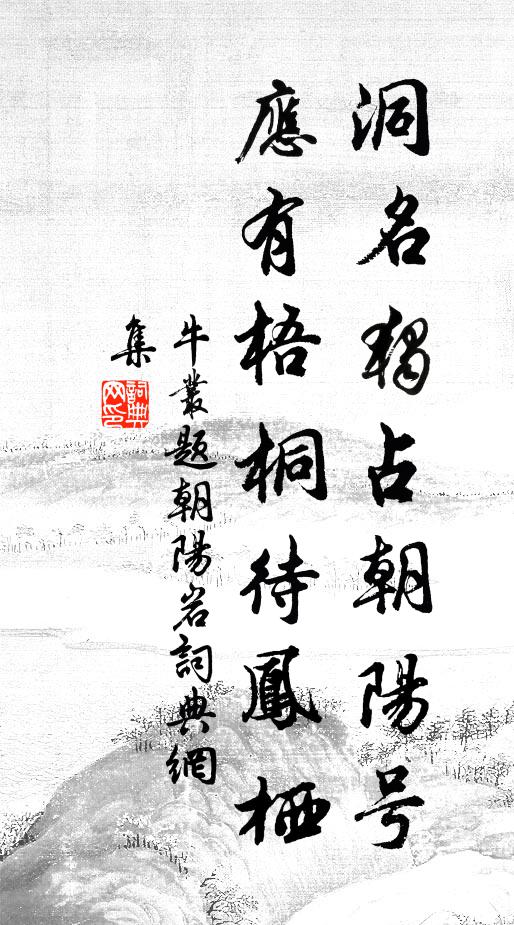 洞名獨占朝陽号
應有梧桐待鳳栖
牛叢題朝陽岩詞典網
集
詞典
网印